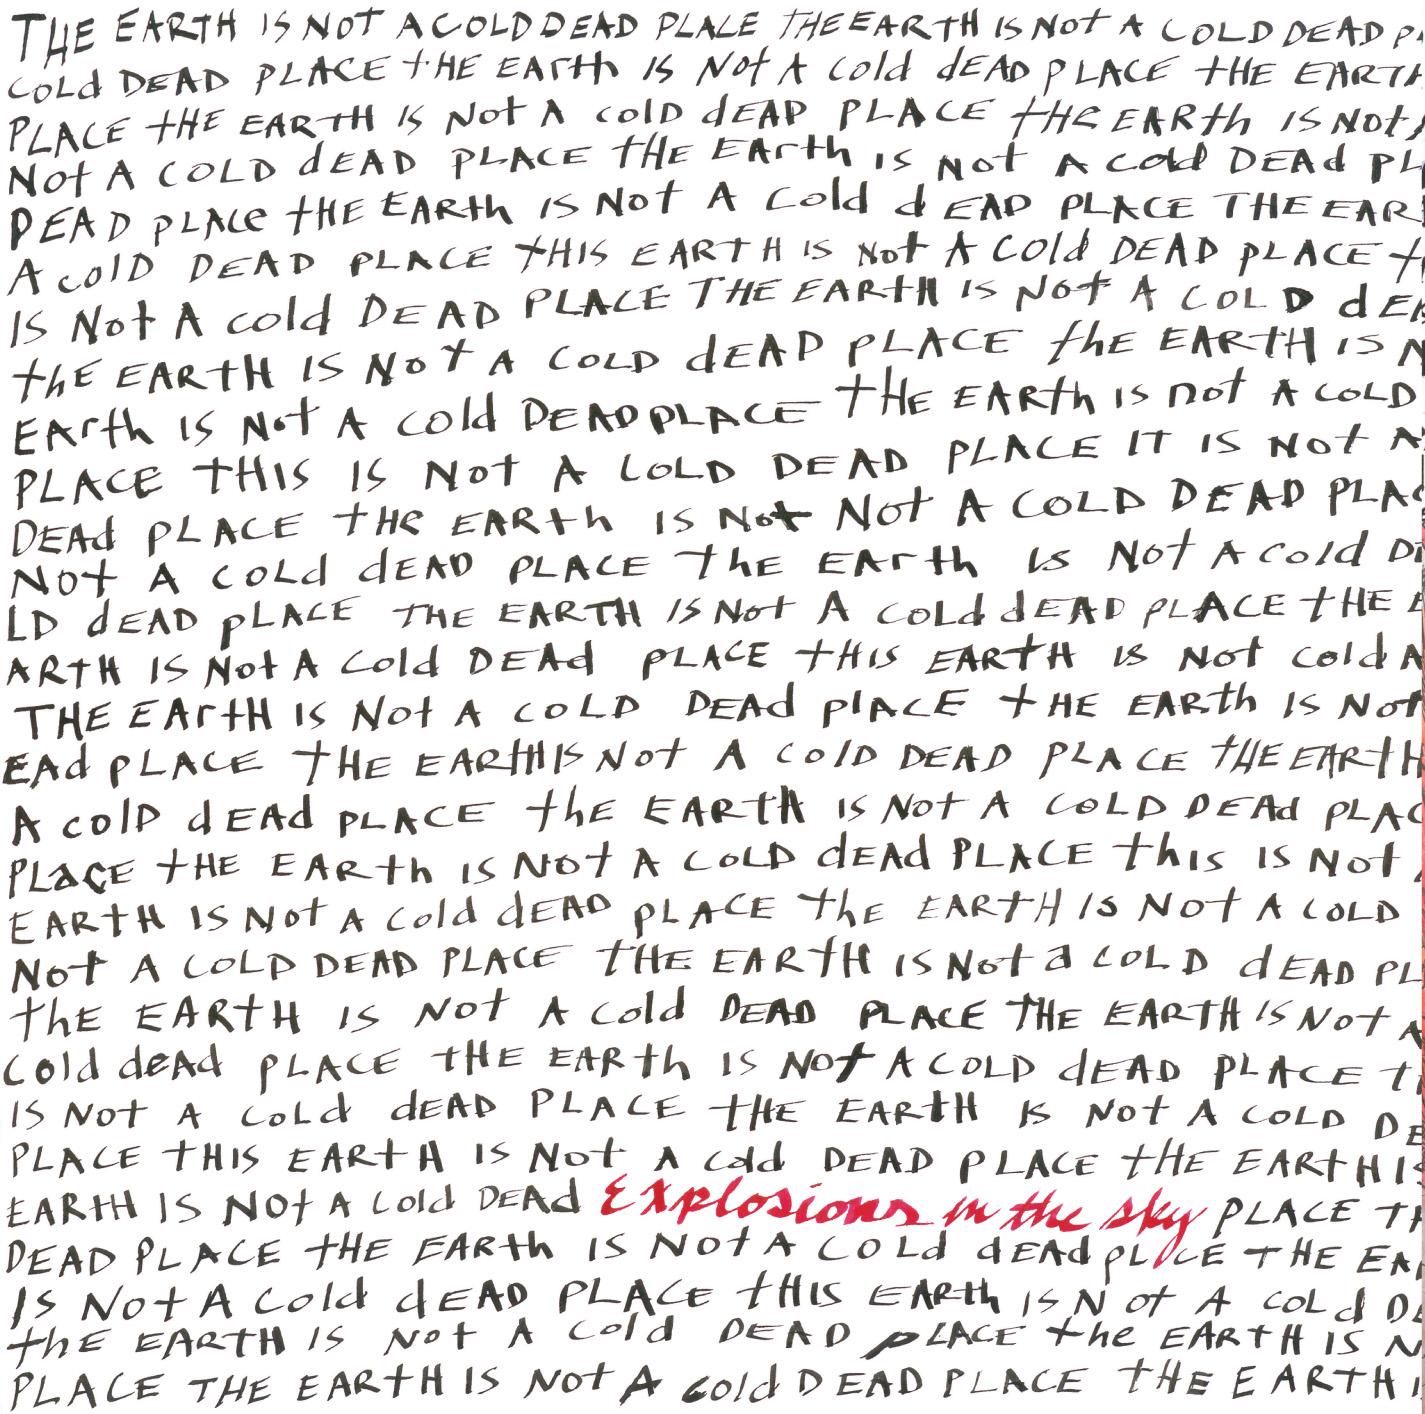 THE EARTH IS NOT A COLD DEAD PLACE THE EARTH IS NOT A COLD DEAD P
COLD DEAD PLACE tHE EArth IS Not A cold dEAD PLACE tHE EARTH
PLACE tHE EARTH IS Not A cOlD dEAD PLACE tHe EARth IS Not
Not A COLD dEAD PLACE tHE EArth is Not A Cold DEAd PL
DEAD pLACe tHE EARth IS Not A Cold d EAD PLACE THE EAR
A colD DEAD PLACE tHIS EARTH IS Not A Cold DEAD pLACE t
IS Not A cold DEAD PLACE THE EARtH IS Not A COLD dE
thE EARtH IS Not A COLD dEAD pLACE the EARtH IS N
EArth IS Not A Cold DEAD PLACE tHE EARth IS not A COLD
PLACE tHIS IS Not A COLD DEAD PLACE IT IS Not A
DEAd pLACE tHe EARth IS Not Not A COLD DEAD PLAC
Not A COLd dEAD PLACE the EArth Is Not A cold D
LD dEAD pLACE THE EARTH IS Not A COLd dEAD pLACE tHE E
ARTH IS Not A Cold DEAd pLACE tHIS EARtH IS Not cold A
THE EArtH IS Not A COLD DEAd plACE tHE EARth IS Not
EAd pLACE tHE EARtH IS Not A colD DEAD PLACE tHE EARtH
A colD dEAd pLACE the EARtH IS Not A COLD DEAd PLAC
PLaCE tHE EARth IS Not A COLD dEAd PLACE this IS Not
EARtH IS Not A Cold dEAD pLACE the EARTH IS Not A COLD
Not A COLD DEAD PLACE tHE EARtH IS Not a COLD dEAD PL
thE EARtH IS Not A Cold DEAD PLACE THE EARTH IS Not A
Cold deAd pLACE tHE EARth IS Not A COLD dEAD PLACE t
IS Not A COLd dEAD PLACE tHE EARtH IS Not A COLD DE
PLACE tHIS EARtH IS Not A Cold DEAD pLACE tHE EARtH IS
EARtH IS Not A Cold DEAd Explosions in the sky PLACE T
DEAD PLACE tHE EARth IS Not A COLd dEAd pLACE THE EA
IS Not A Cold dEAD PLACE tHIS EARth IS N ot A COLd D
thE EARTH IS Not A Cold DEAD pLACE the EARTH IS N
PLACE THE EARtH IS Not A Cold DEAD PLACE tHE EARTH